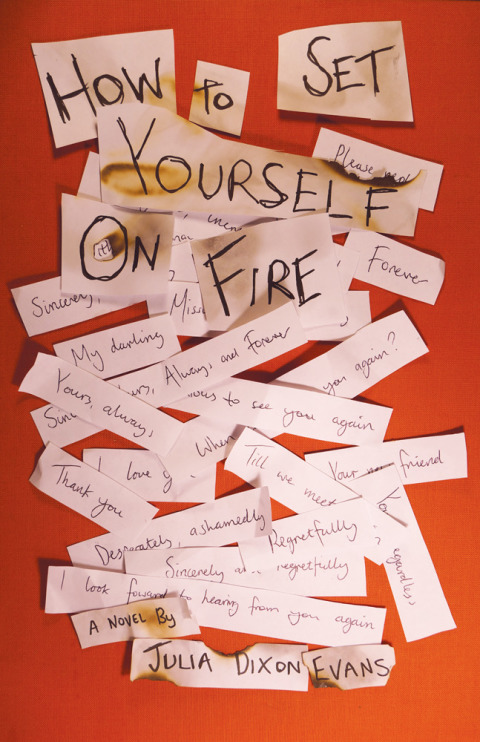 HOW TO SET
YOURSELF
ON FIRE
Please
Forever
Sincerely,
My darling
Always, and Forever
you again?
Yours, always,
to see you again
When
I love
Till we meet
Your friend
Thank you
regardless
Desperately, ashamedly
Regretfully
Sincerely regretfully
I look foward to hearing from you again
A NOVEL BY
JULIA DIXON EVANS